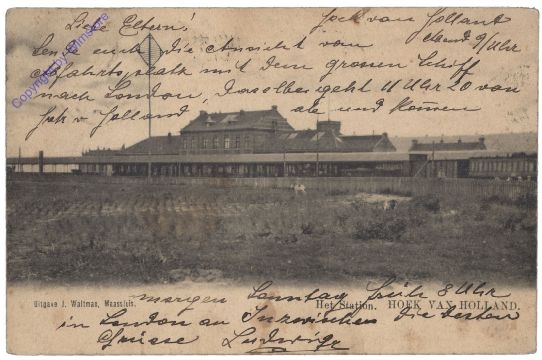 Hoek van Holland
Liebe Eltern!
Abend 9 Uhr
Sende euch die Ansicht vom
Abfahrtsplatz mit dem grossen Schiff
nach London, Dasselbe geht 11 Uhr 20 von
Hoek v Holland ab und kommen
Copyright by filmstore
Uitgave J. Waltman, Maassluis.
Het Station. HOEK VAN HOLLAND.
morgen Sonntag früh 8 Uhr
in London an Inzwischen die besten
Grüsse Ludwig